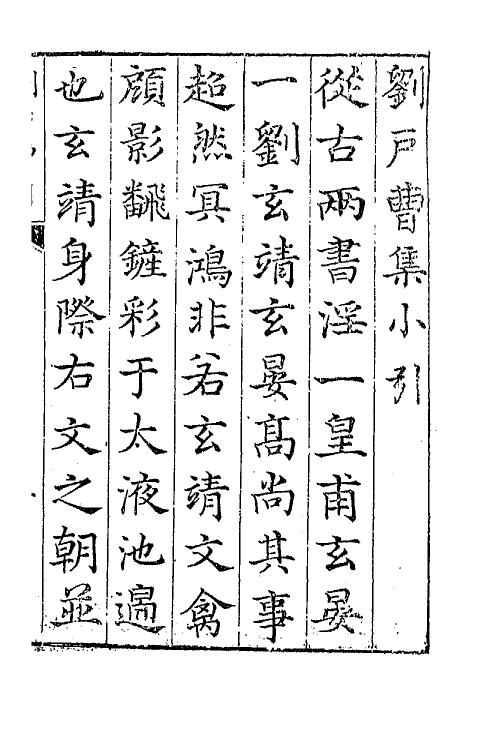 劉戸曹集小引
從古兩書淫一皇甫玄晏
一劉玄靖玄晏髙尚其事
超然冥鴻非若玄靖文禽
顧影翻鏟彩于太液池邊
也玄靖身際右文之朝並